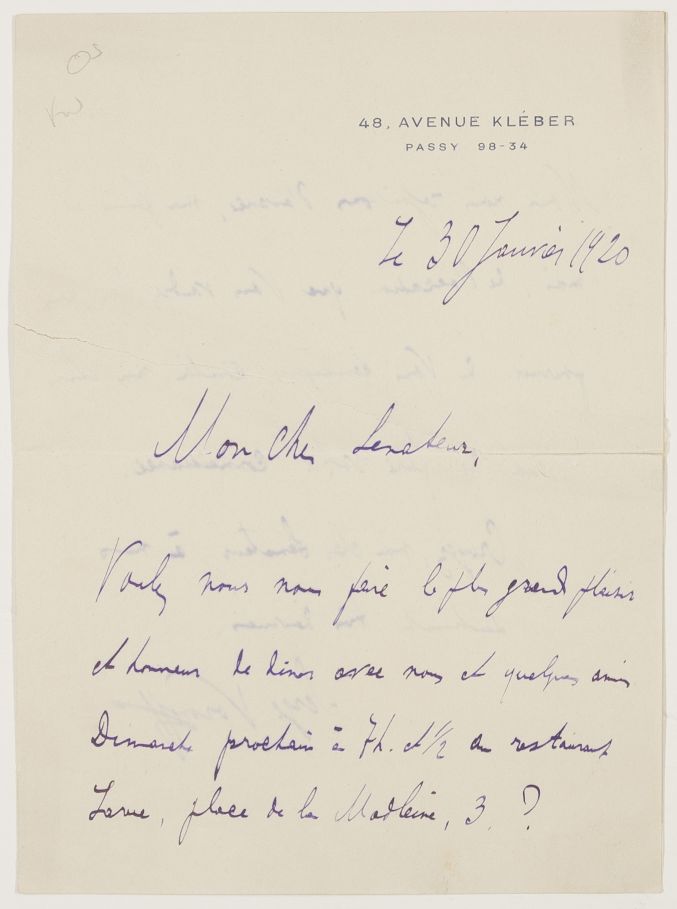 48, AVENUE KLÉBER
PASSY 98-34
Le 30 Janvier 1920
Mon cher Senateur,
Voulez nous nous faire le plus grand plaisir
et honneur de diner avec nous et quelques amis
Dimanche prochain à 7h. et 1/2 au restaurant
Larue, place de la Madleine, 3. ?